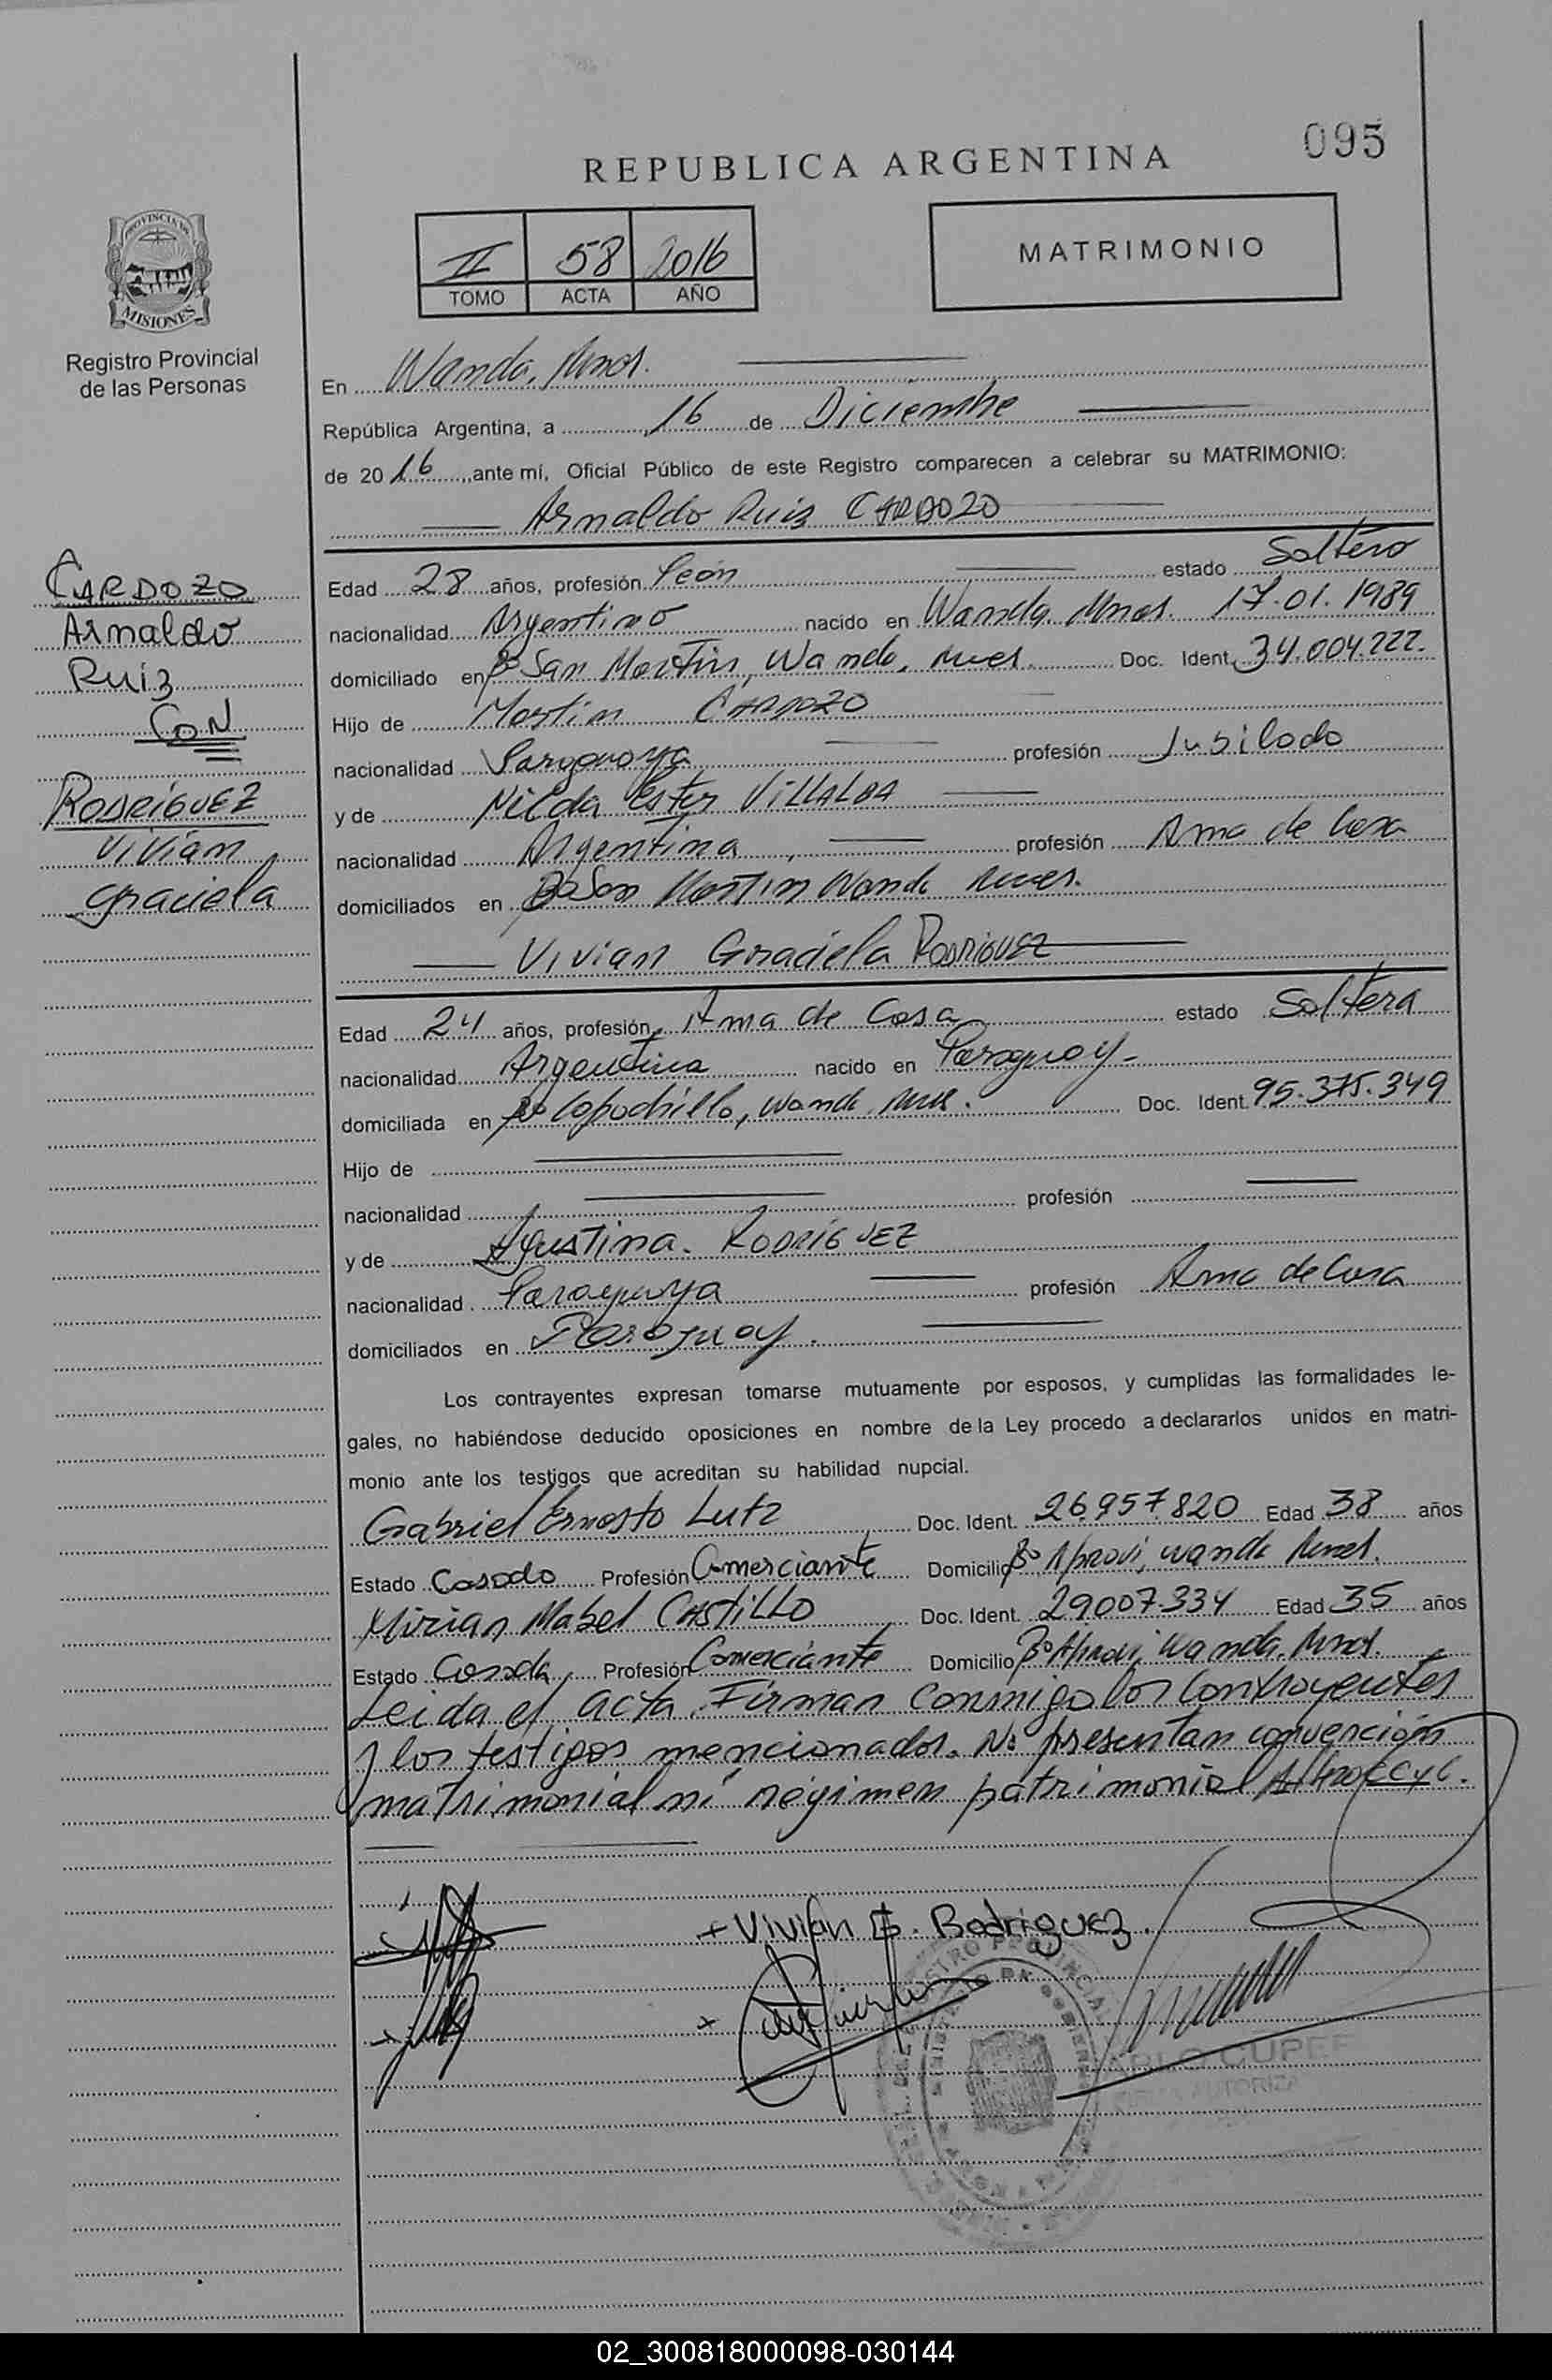 095
REPUBLICA ARGENTINA
II 58 2016
TOMO ACTA AÑO
MATRIMONIO
PROVINCIA DE
MISIONES
Registro Provincial
de las Personas
En Wanda, Mnes.
República Argentina, a 16 de Diciembre
de 2016, ante mí, Oficial Público de este Registro comparecen a celebrar su MATRIMONIO:
Arnaldo Ruiz CARDOZO
CARDOZO
Arnaldo
Ruiz
CON
RODRÍGUEZ
Vivián
Graciela
Edad 28 años, profesión Peón estado Soltero
nacionalidad Argentino nacido en Wanda, Mnes. 17.01.1989
domiciliado en Bº San Martín, Wanda, Mnes. Doc. Ident. 34.004.222.
Hijo de Martin CARDOZO
nacionalidad Paraguaya profesión Jubilado
y de Nilda Ester VILLALBA
nacionalidad Argentina, profesión Ama de Casa
domiciliados en Bº San Martin Wanda Mnes.
Vivian Graciela RODRIGUEZ
Edad 24 años, profesión Ama de Casa estado Soltera
nacionalidad Argentina nacido en Paraguay-
domiciliada en Bº Capochillo, Wanda, Mnes. Doc. Ident. 95.375.349
Hijo de
nacionalidad profesión
y de Agustina. RODRÍGUEZ
nacionalidad Paraguaya profesión Ama de Casa
domiciliados en Paraguay.
Los contrayentes expresan tomarse mutuamente por esposos, y cumplidas las formalidades le-
gales, no habiéndose deducido oposiciones en nombre de la Ley procedo a declararlos unidos en matri-
monio ante los testigos que acreditan su habilidad nupcial.
Gabriel Ernesto Lutz Doc. Ident. 26.957.820 Edad 38 años
Estado Casado Profesión Comerciante Domicilio Bº Aprovi, Wanda Mnes.
Mirian Mabel CASTILLO Doc. Ident. 29.007.334 Edad 35 años
Estado Casada Profesión Comerciante Domicilio Bº Aprovi, Wanda, Mnes.
Leida el acta. Firman conmigo los Contrayentes
y los testigos mencionados. No presentan convención
matrimonial ni régimen patrimonial CCyC.
+ Vivian G. Rodriguez.
02_300818000098-030144